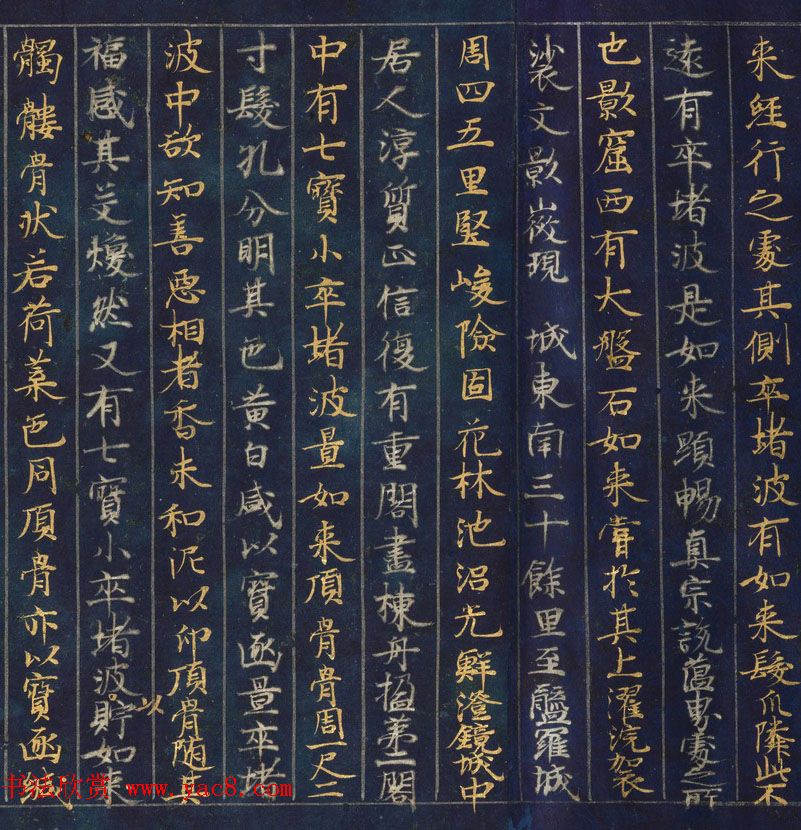 来經行之處其側卒堵波有如来髮爪隣此不
遠有卒堵波是如来顯暢真宗說蘊界處之所
也影窟西有大盤石如来甞於其上濯浣袈
裟文影微現 城東南三十餘里至醯羅城
周四五里竪峻險固花林池沼光鮮澄鏡城中
居人淳質正信復有重閣畫棟丹楹第二閣
中有七寶小卒堵波量如来頂骨骨周一尺二
寸髮孔分明其色黄白咸以寶函置卒堵
波中欲知善惡相者香末和泥以印頂骨随其
福感其文煥然又有七寶小卒堵波以貯如来
髑髏骨狀若荷葉色同頂骨亦以寶函緘
书法欣赏 www.yac8.com